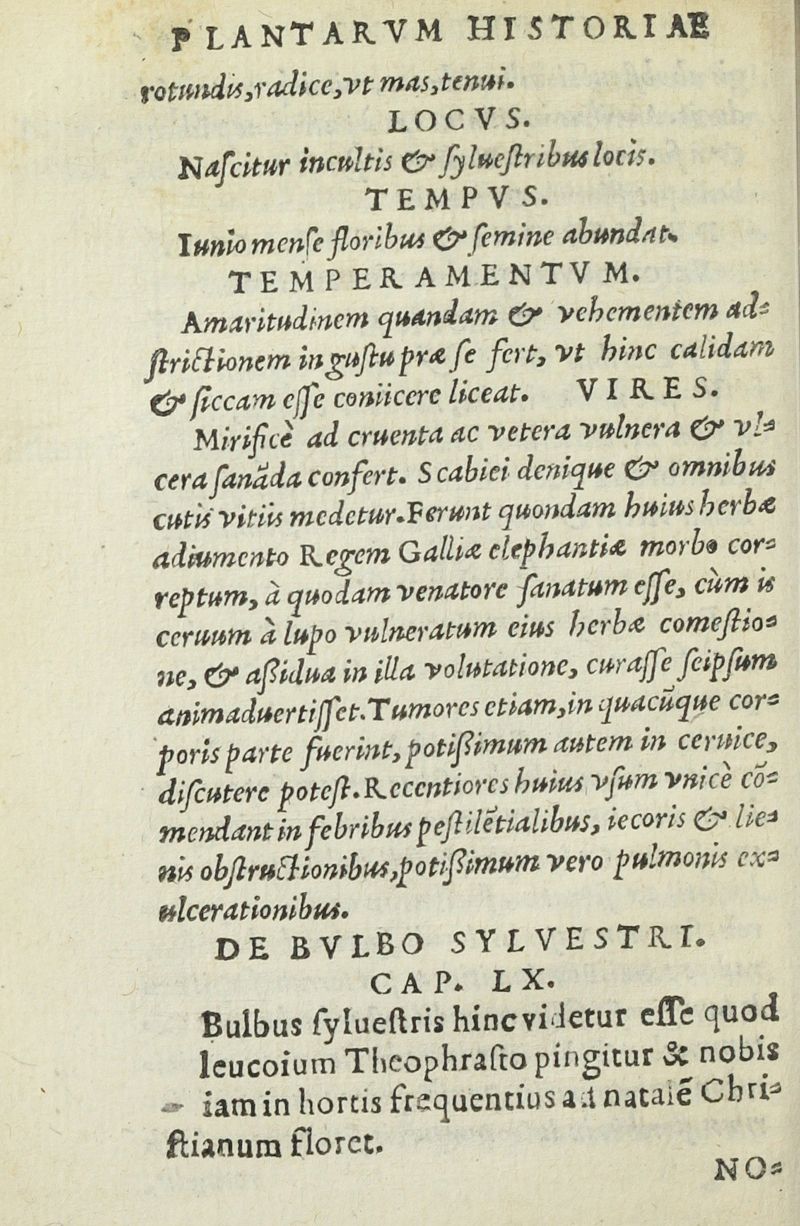 PLANTARVM HISTORIAE
rotundis,radice,vt mas,tenui.
LOCVS.
Naſcitur incultis & ſylueſtribus locis.
TEMPVS.
Iunio menſe floribus & ſemine abundat.
TEMPERAMENTVM.
Amaritudinem quandam & vehementem ad-
ſtrictionem in guſtu præ ſe fert, vt hinc calidam
& ſiccam eſſe coniicere liceat. VIRES.
Mirificè ad cruenta ac vetera vulnera & vl-
cera ſanāda confert. Scabiei denique & omnibus
cutis vitiis medetur.Ferunt quondam huius herbæ
adiumento Regem Galliæ elephantiæ morbo cor-
reptum, à quodam venatore ſanatum eſſe, cùm is
ceruum à lupo vulneratum eius herbæ comeſtio-
ne, & aßidua in illa volutatione, curaſſe ſeipſum
animaduertiſſet.Tumores etiam,in quacũque cor-
poris parte fuerint, potißimum autem in ceruice,
diſcutere poteſt.Recentiores huius vſum vnicè cō-
mendant in febribus peſtilētialibus, iecoris & lie-
nis obſtructionibus,potißimum vero pulmonis ex-
ulcerationibus.
DE BVLBO SYLVESTRI.
CAP. LX.
Bulbus ſylueſtris hinc videtur eſſe quod
leucoium Theophraſto pingitur & nobis
iam in hortis frequentius ad natalē Chri-
ſtianum floret.
NO-